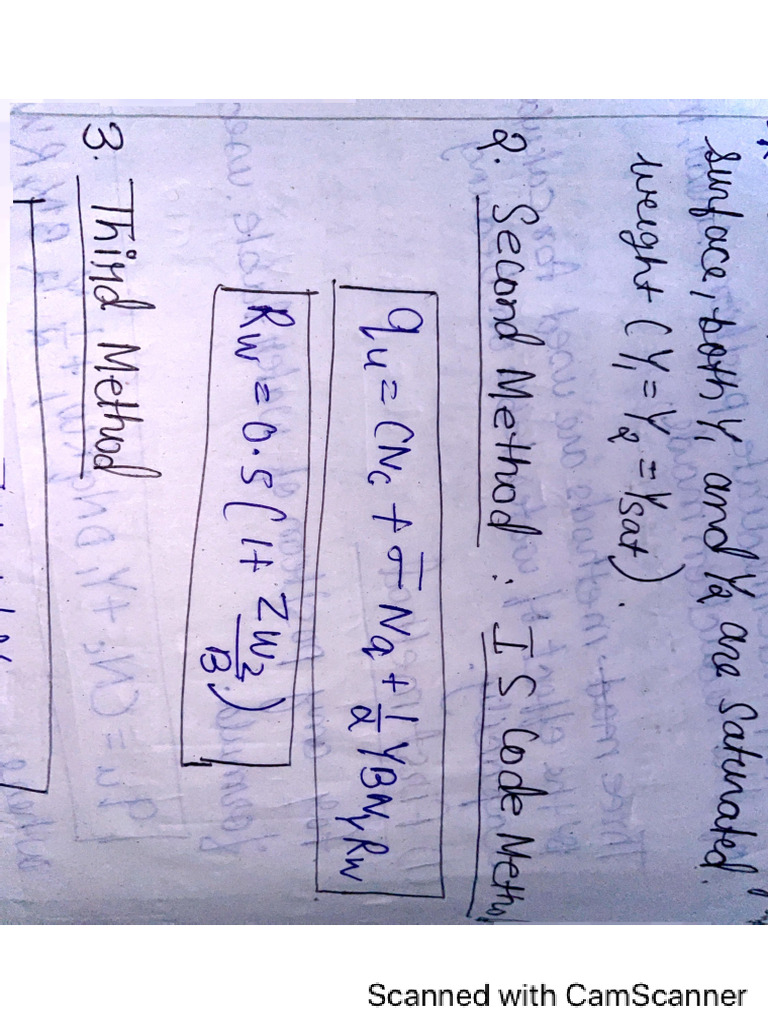 surface, both γ₁ and γ₂ are saturated.
weight (γ₁ = γ₂ = γsat).
2. Second Method : IS Code Metho
qu = CNc + σ̄ Nq + 1/2 γBNγ Rw
Rw = 0.5 (1 + Zw2/B)
3. Third Method
Scanned with CamScanner